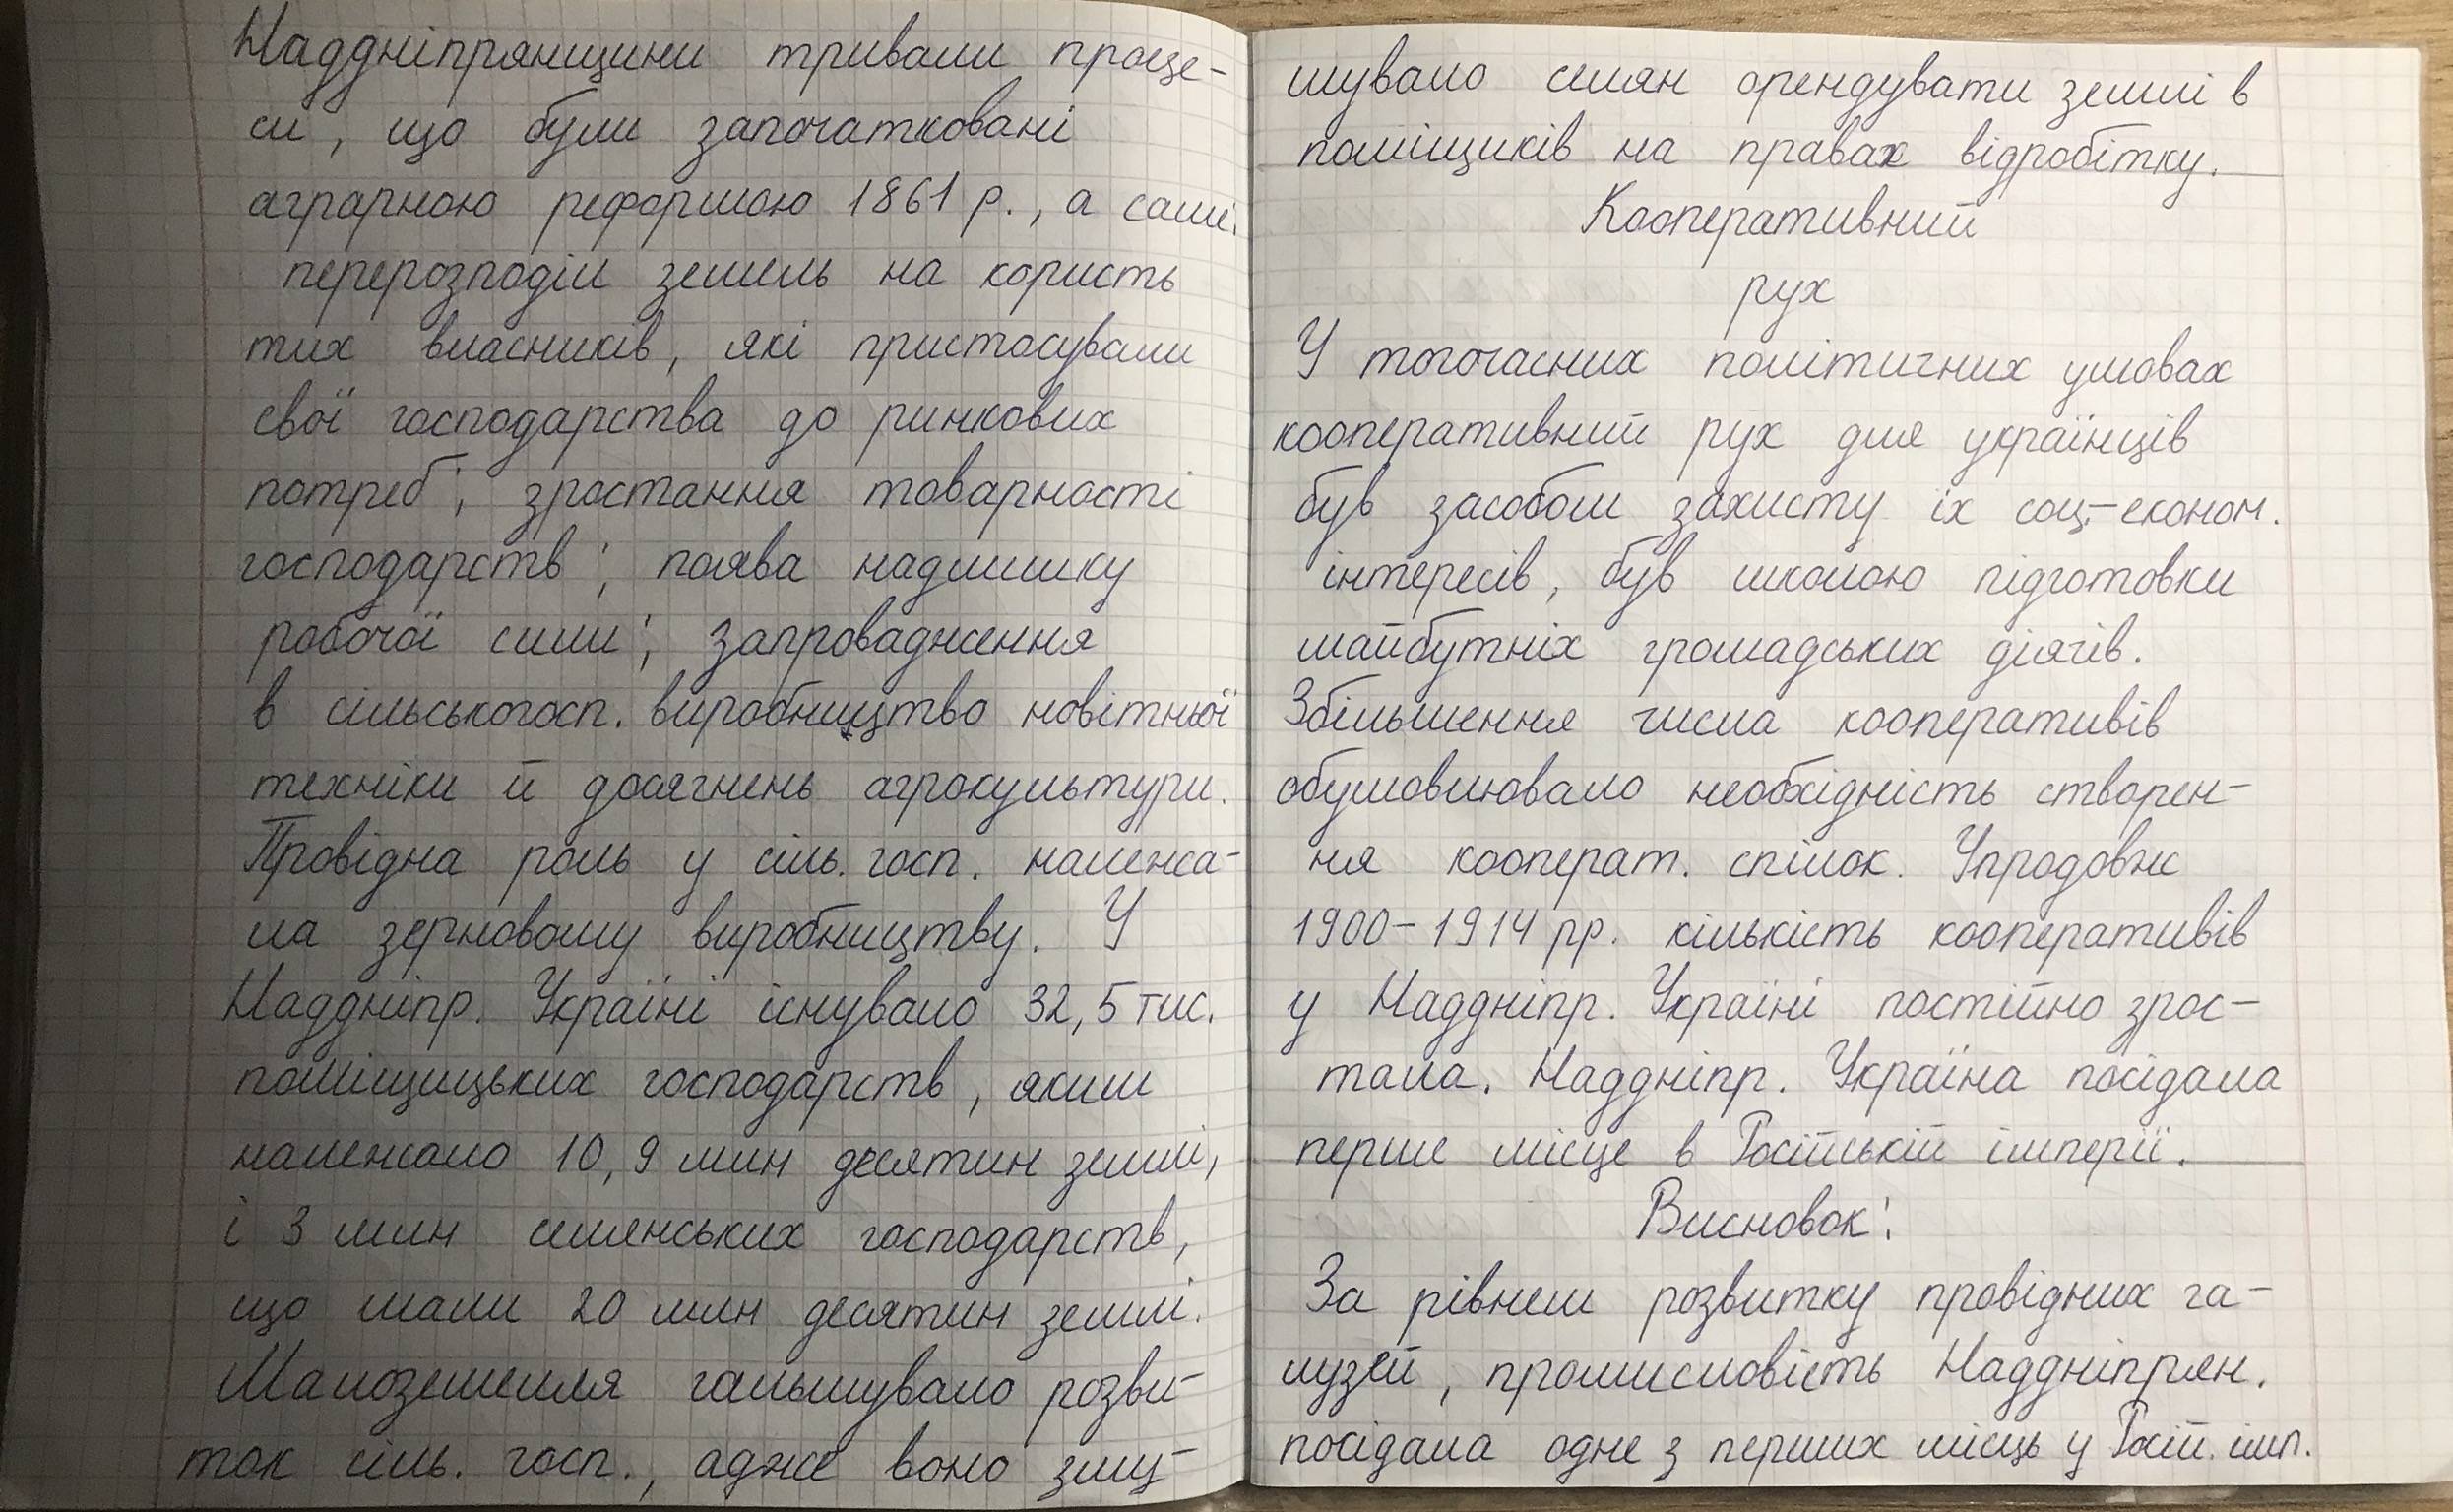 Наддніпрянщини тривали проце-
си, що були започатковані
аграрною реформою 1861 р., а саме:
перерозподіл земель на користь
тих власників, які пристосували
свої господарства до ринкових
потреб; зростання товарності
господарств; поява надлишку
робочої сили; запровадження
в сільськогосп. виробництво новітньої
техніки й досягнень агрокультури.
Провідна роль у сіль. госп. належа-
ла зерновому виробництву. У
Наддніпр. Україні існувало 32,5 тис.
поміщицьких господарств, яким
належало 10,9 млн десятин землі,
і 3 млн селянських господарств,
що мали 20 млн десятин землі.
Малоземелля гальмувало розви-
ток сіль. госп., адже воно зму-
шувало селян орендувати землі в
поміщиків на правах відробітку.
Кооперативний
рух
У тогочасних політичних умовах
кооперативний рух для українців
був засобом захисту їх соц.-економ.
інтересів, був школою підготовки
майбутніх громадських діячів.
Збільшення числа кооперативів
обумовлювало необхідність створен-
ня кооперат. спілок. Упродовж
1900-1914 рр. кількість кооперативів
у Наддніпр. Україні постійно зрос-
тала. Наддніпр. Україна посідала
перше місце в Російській імперії.
Висновок:
За рівнем розвитку провідних га-
лузей, промисловість Наддніпрян.
посідала одне з перших місць у Росій. імп.